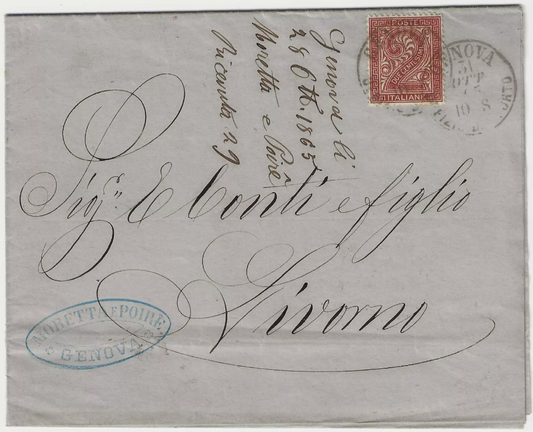 Genova li
28 Ott. 1865
Moretta e Poirè
Ricevuta 29
POSTE
2
DUE CENTESIMI
ITALIANE
GENOVA
OTT
10 S
Sigri E Conti e figlio
Livorno
MORETTA E POIRE
GENOVA